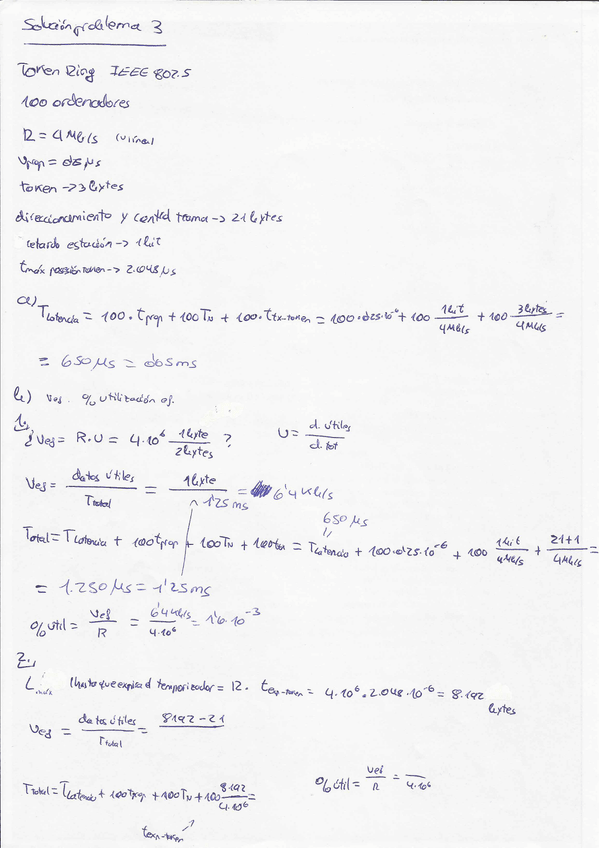 Solución problema 3
Token Ring IEEE 802.5
100 ordenadores
R = 4 Mb/s (v línea)
Vprop = 0'25 μs
token -> 3 bytes
direccionamiento y control trama -> 21 bytes
retardo estación -> 1 bit
tmáx posesión token -> 2.048 μs
a) TLatencia = 100 · tprop + 100 TN + 100 · ttx-token = 100 · 0'25·10^-6 + 100 1bit/4Mb/s + 100 3bytes/4Mb/s =
= 650 μs = 0'65 ms
b) Vef. % utilización ef.
1.
¿Vef = R·U = 4·10^6 1byte/2bytes ? U = d. útiles/d. tot
Vef = datos útiles/Ttotal = 1byte/1'25 ms = 6'4 Kb/s
650 μs
Ttotal = TLatencia + 100 tprop + 100 TN + 100 = TLatencia + 100·0'25·10^-6 + 100 1bit/4Mb/s + 21+1/4Mb/s =
= 1.250 μs = 1'25 ms
% útil = Vef/R = 6'4Kb/s/4·10^6 = 1'6·10^-3
2.
Lmáx (hasta que expira el temporizador = R · texp-token = 4·10^6 · 2.048·10^-6 = 8.192 bytes
Vef = datos útiles/Ttotal = 8192-21
Ttotal = TLatencia + 100 tprop + 100 TN + 100 8.192/4·10^6 = % útil = Vef/R = /4·10^6
texp-token